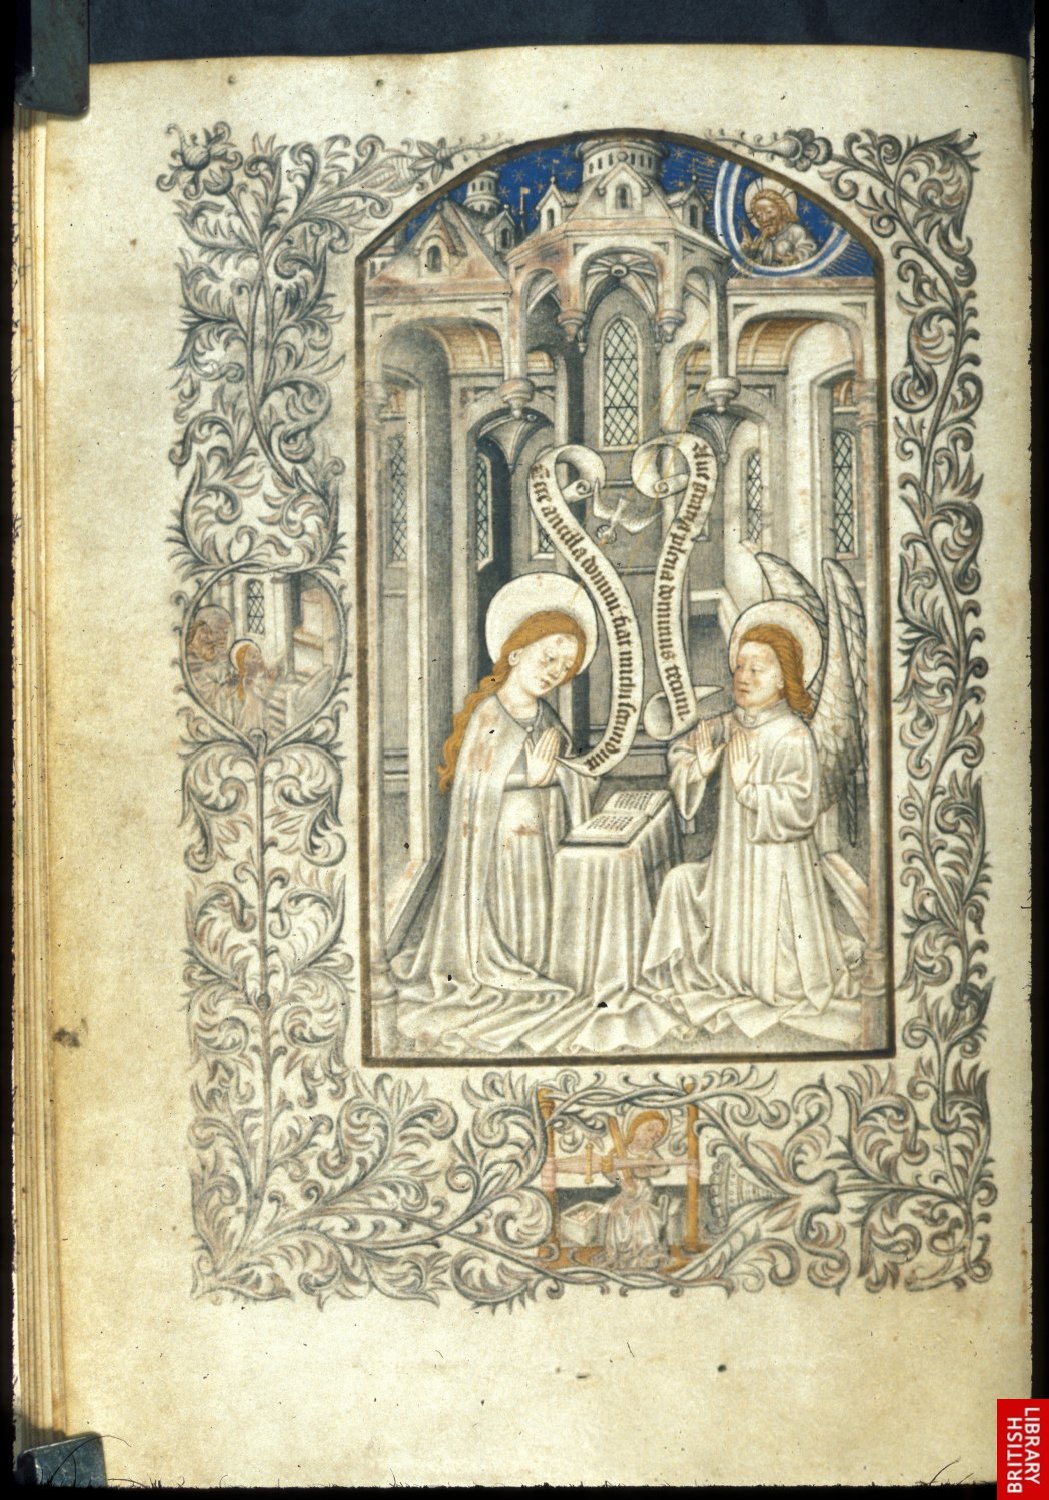 Ecce ancilla domini fiat michi secundum
Aue gratia plena dominus tecum
BRITISH
LIBRARY